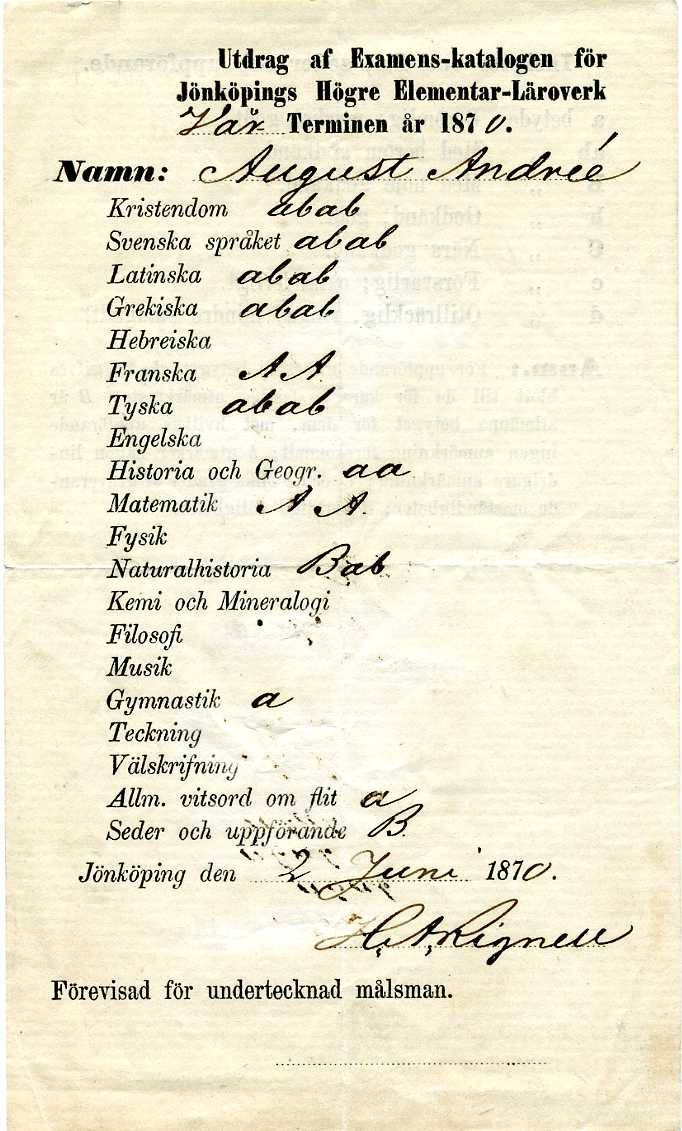 Utdrag af Examens-katalogen för
Jönköpings Högre Elementar-Läroverk
Vår Terminen år 1870.
Namn: August Andrée
Kristendom abab
Svenska språket abab
Latinska abab
Grekiska abab
Hebreiska
Franska A A
Tyska abab
Engelska
Historia och Geogr. aa
Matematik A A.
Fysik
Naturalhistoria Bab
Kemi och Mineralogi
Filosofi
Musik
Gymnastik a
Teckning
Välskrifning
Allm. vitsord om flit a
Seder och uppförande B.
Jönköping den 2 Juni 1870.
H. A. Rignell
Förevisad för undertecknad målsman.